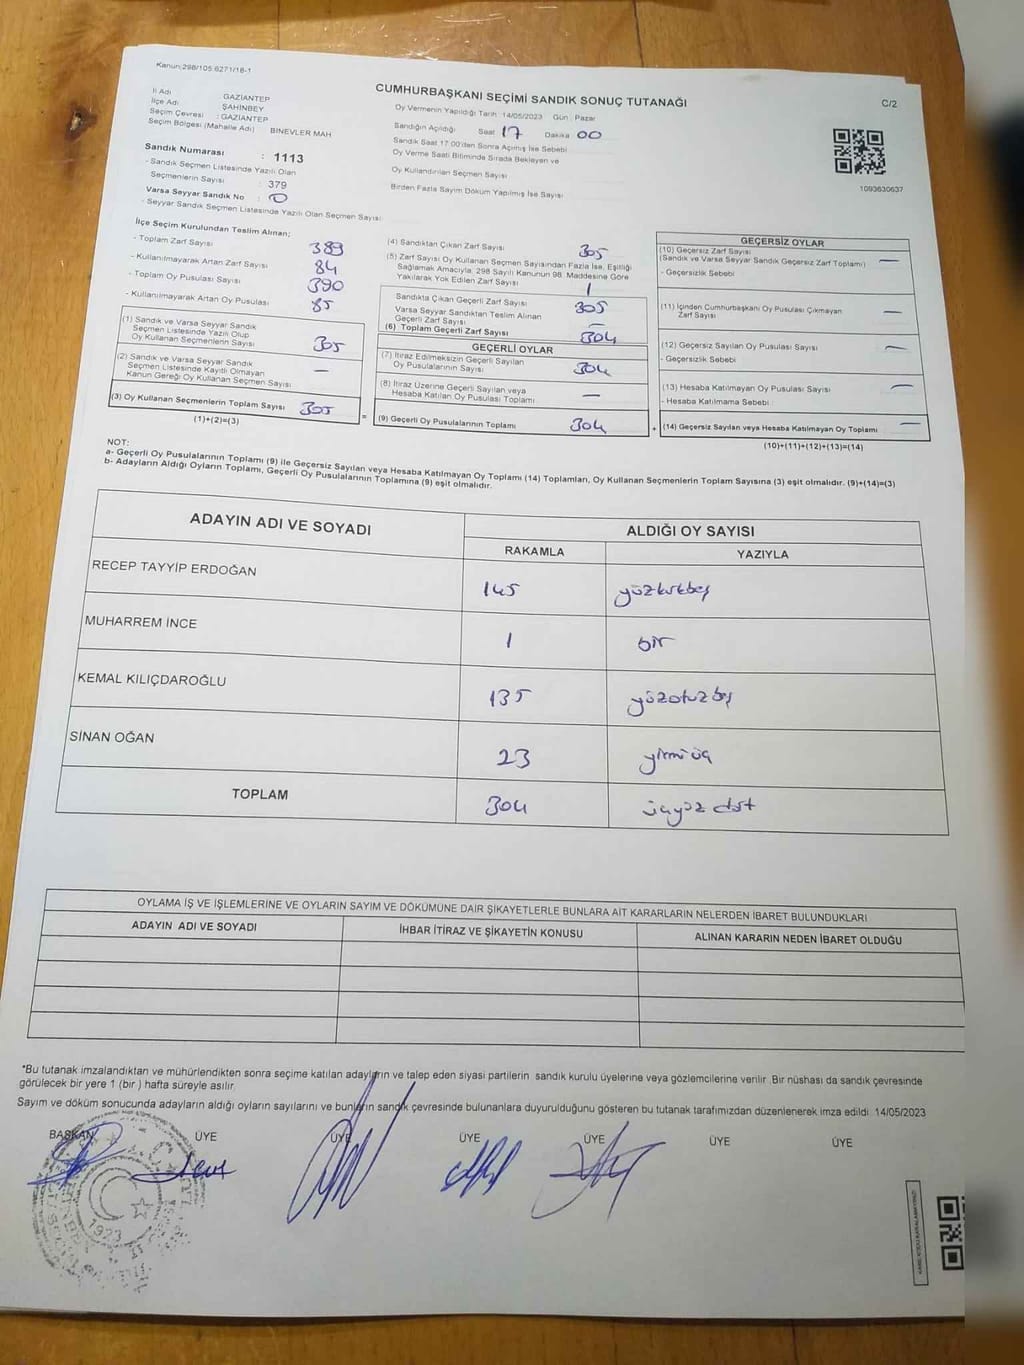 Kanun:298/105:6271/18-1
CUMHURBAŞKANI SEÇİMİ SANDIK SONUÇ TUTANAĞI
C/2
İl Adı GAZİANTEP
İlçe Adı ŞAHİNBEY
Seçim Çevresi : GAZİANTEP
Seçim Bölgesi (Mahalle Adı) BİNEVLER MAH
Oy Vermenin Yapıldığı Tarih : 14/05/2023 Gün : Pazar
Sandığın Açıldığı Saat 17 Dakika 00
Sandık Saat 17.00'den Sonra Açılmış İse Sebebi
Oy Verme Saati Bitiminde Sırada Bekleyen ve
Oy Kullandırılan Seçmen Sayısı
Birden Fazla Sayım Döküm Yapılmış İse Sayısı
1093630637
Sandık Numarası : 1113
- Sandık Seçmen Listesinde Yazılı Olan
Seçmenlerin Sayısı : 379
Varsa Seyyar Sandık No : 0
- Seyyar Sandık Seçmen Listesinde Yazılı Olan Seçmen Sayısı
İlçe Seçim Kurulundan Teslim Alınan;
- Toplam Zarf Sayısı 389
- Kullanılmayarak Artan Zarf Sayısı 84
- Toplam Oy Pusulası Sayısı 390
- Kullanılmayarak Artan Oy Pusulası 85
(1) Sandık ve Varsa Seyyar Sandık
Seçmen Listesinde Yazılı Olup
Oy Kullanan Seçmenlerin Sayısı 305
(2) Sandık ve Varsa Seyyar Sandık
Seçmen Listesinde Kayıtlı Olmayan
Kanun Gereği Oy Kullanan Seçmen Sayısı —
(3) Oy Kullanan Seçmenlerin Toplam Sayısı 305
(1)+(2)=(3)
(4) Sandıktan Çıkan Zarf Sayısı 305
(5) Zarf Sayısı Oy Kullanan Seçmen Sayısından Fazla İse, Eşitliği
Sağlamak Amacıyla, 298 Sayılı Kanunun 98. Maddesine Göre
Yakılarak Yok Edilen Zarf Sayısı 1
Sandıkta Çıkan Geçerli Zarf Sayısı 305
Varsa Seyyar Sandıktan Teslim Alınan
Geçerli Zarf Sayısı —
(6) Toplam Geçerli Zarf Sayısı 304
GEÇERLİ OYLAR
(7) İtiraz Edilmeksizin Geçerli Sayılan
Oy Pusulalarının Sayısı 304
(8) İtiraz Üzerine Geçerli Sayılan veya
Hesaba Katılan Oy Pusulası Toplamı —
= (9) Geçerli Oy Pusulalarının Toplamı 304 +
GEÇERSİZ OYLAR
(10) Geçersiz Zarf Sayısı
(Sandık ve Varsa Seyyar Sandık Geçersiz Zarf Toplamı) —
- Geçersizlik Sebebi
(11) İçinden Cumhurbaşkanı Oy Pusulası Çıkmayan
Zarf Sayısı —
(12) Geçersiz Sayılan Oy Pusulası Sayısı —
- Geçersizlik Sebebi
(13) Hesaba Katılmayan Oy Pusulası Sayısı —
- Hesaba Katılmama Sebebi
(14) Geçersiz Sayılan veya Hesaba Katılmayan Oy Toplamı —
(10)+(11)+(12)+(13)=(14)
NOT:
a- Geçerli Oy Pusulalarının Toplamı (9) ile Geçersiz Sayılan veya Hesaba Katılmayan Oy Toplamı (14) Toplamları, Oy Kullanan Seçmenlerin Toplam Sayısına (3) eşit olmalıdır. (9)+(14)=(3)
b- Adayların Aldığı Oyların Toplamı, Geçerli Oy Pusulalarının Toplamına (9) eşit olmalıdır.
ADAYIN ADI VE SOYADI ALDIĞI OY SAYISI
RAKAMLA YAZIYLA
RECEP TAYYİP ERDOĞAN 145 yüzkırkbeş
MUHARREM İNCE 1 bir
KEMAL KILIÇDAROĞLU 135 yüzotuzbeş
SİNAN OĞAN 23 yirmiüç
TOPLAM 304 üçyüz dört
OYLAMA İŞ VE İŞLEMLERİNE VE OYLARIN SAYIM VE DÖKÜMÜNE DAİR ŞİKAYETLERLE BUNLARA AİT KARARLARIN NELERDEN İBARET BULUNDUKLARI
ADAYIN ADI VE SOYADI İHBAR İTİRAZ VE ŞİKAYETİN KONUSU ALINAN KARARIN NEDEN İBARET OLDUĞU
*Bu tutanak imzalandıktan ve mühürlendikten sonra seçime katılan adayların ve talep eden siyasi partilerin sandık kurulu üyelerine veya gözlemcilerine verilir .Bir nüshası da sandık çevresinde
görülecek bir yere 1 (bir ) hafta süreyle asılır.
Sayım ve döküm sonucunda adayların aldığı oyların sayılarını ve bunların sandık çevresinde bulunanlara duyurulduğunu gösteren bu tutanak tarafımızdan düzenlenerek imza edildi. 14/05/2023
BAŞKAN ÜYE ÜYE ÜYE ÜYE ÜYE ÜYE
1923